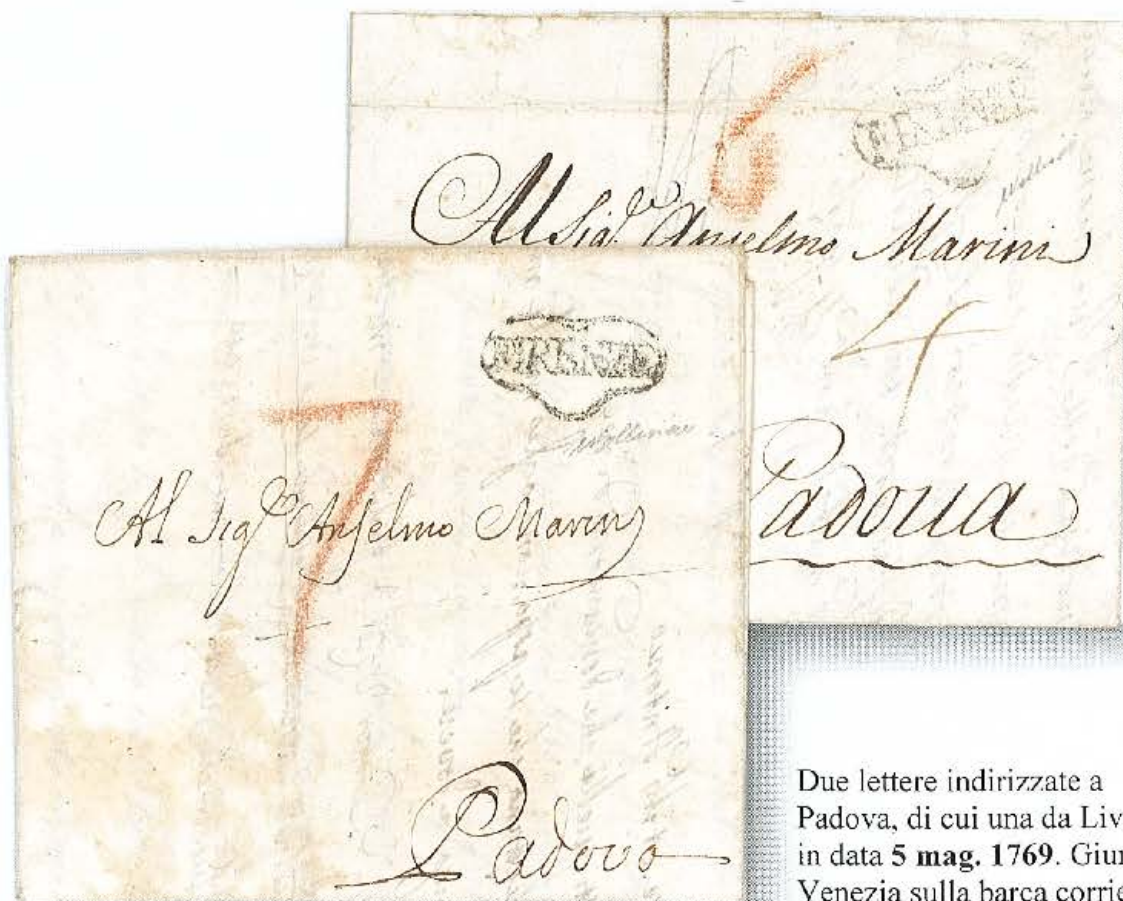 6
FIRENZE
Al Sig.re Anselmo Marini
4
Padoua
FIRENZE
7
Al Sig.re Anselmo Marinj
Padova
Due lettere indirizzate a
Padova, di cui una da Liv
in data 5 mag. 1769. Giun
Venezia sulla barca corrie